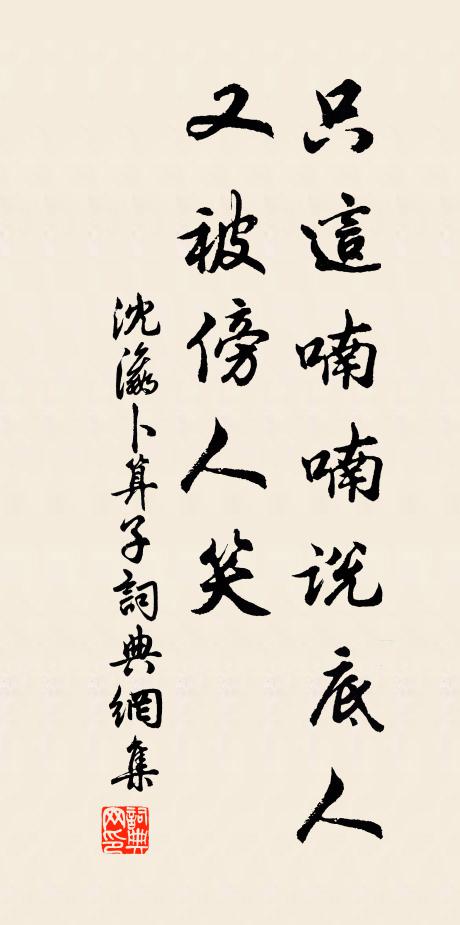 只這喃喃説底人
又被傍人笑
沈瀛卜算子詞典網集
詞典網印